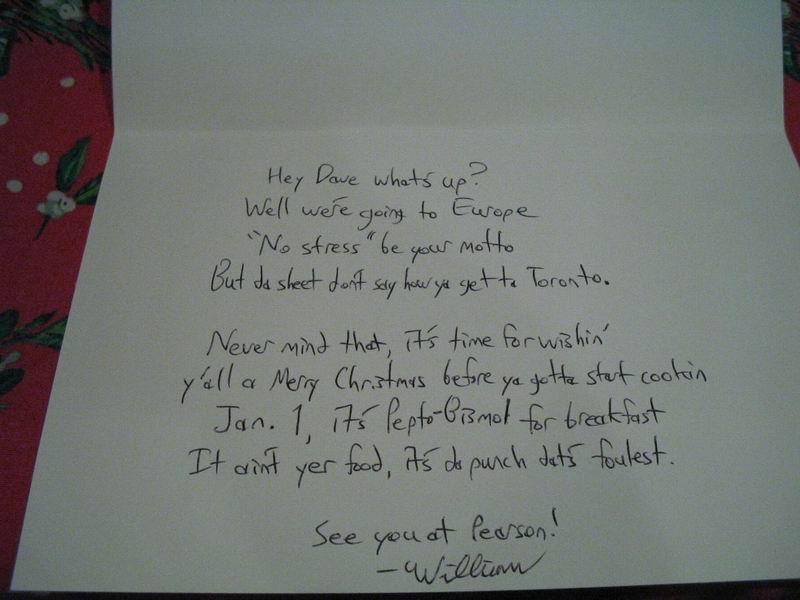 Hey Dave what's up?
Well we're going to Europe
"No stress" be your motto
But da sheet don't say how ya get ta Toronto.
Never mind that, it's time for wishin'
y'all a Merry Christmas before ya gotta start cookin
Jan. 1, it's Pepto-Bizmol for breakfast
It ain't yer food, it's da punch dat's foulest.
See you at Pearson!
- William